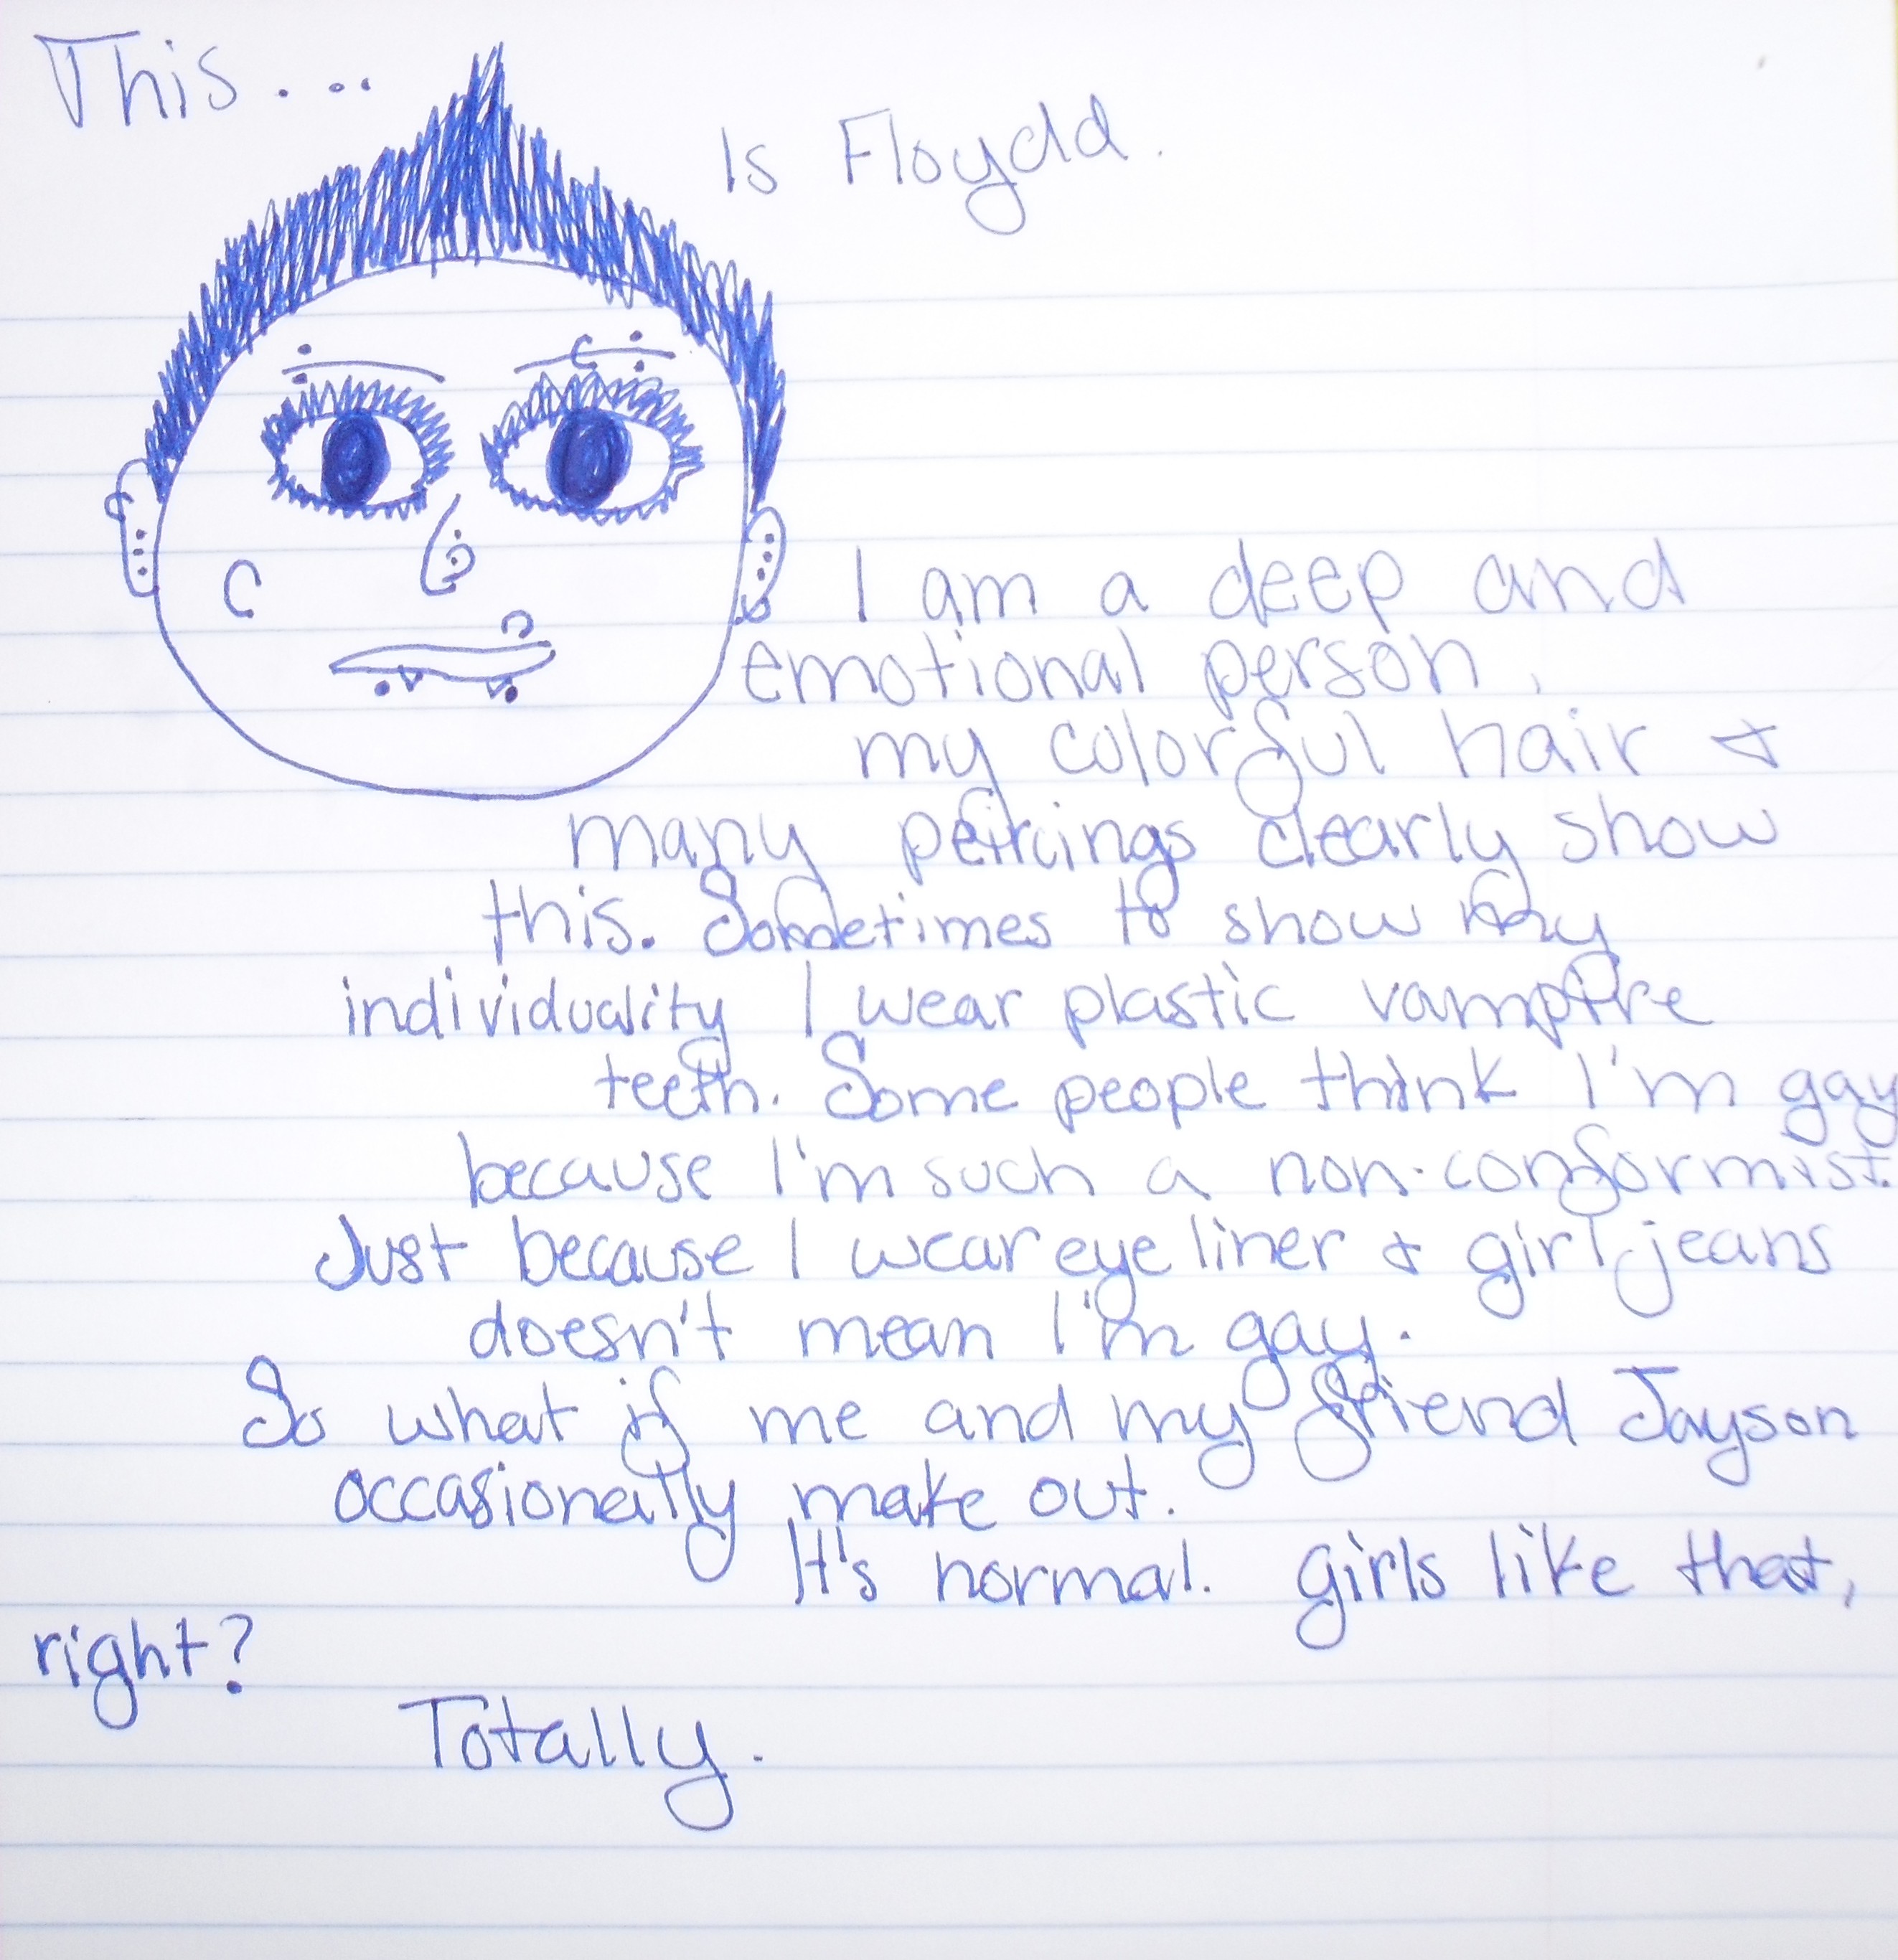 This....
Is Floydd.
I am a deep and
emotional person,
my colorful hair &
many peircings clearly show
this. Sometimes to show my
individuality I wear plastic vampire
teeth. Some people think I'm gay
because I'm such a non-conformist.
Just because I wear eye liner & girl jeans
doesn't mean I'm gay.
So what if me and my friend Jayson
occasionally make out.
It's normal. Girls like that,
right?
Totally.